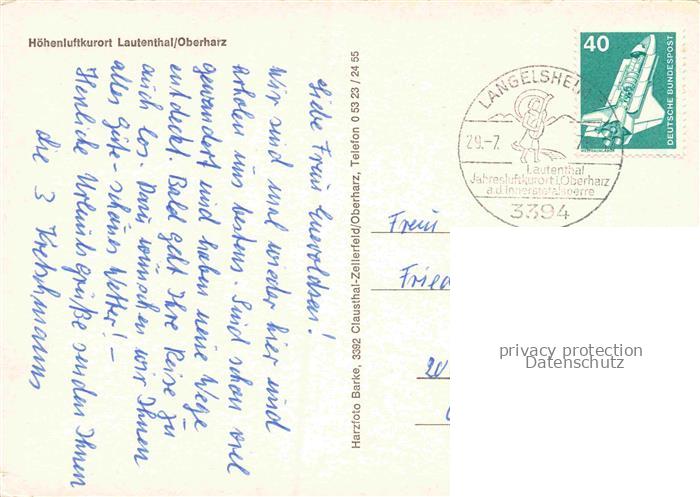 Höhenluftkurort Lautenthal/Oberharz
Liebe Frau Ewoldsen!
Wir sind mal wieder hier und
erholen uns bestens. Sind schon viel
gewandert und haben neue Wege
entdeckt. Bald geht Ihre Reise ja
auch los. Dazu wünschen wir Ihnen
alles Gute - schönes Wetter! -
Herzliche Urlaubsgrüße senden Ihnen
die 3 Kretschmanns
Harzfoto Barke, 3392 Clausthal-Zellerfeld/Oberharz, Telefon 0 53 23 / 24 55
LANGELSHEI
29.-7.
Lautenthal
Jahresluftkurort i. Oberharz
a.d. Innerstetalsperre
3394
40
DEUTSCHE BUNDESPOST
Frau
Fried
20
privacy protection
Datenschutz